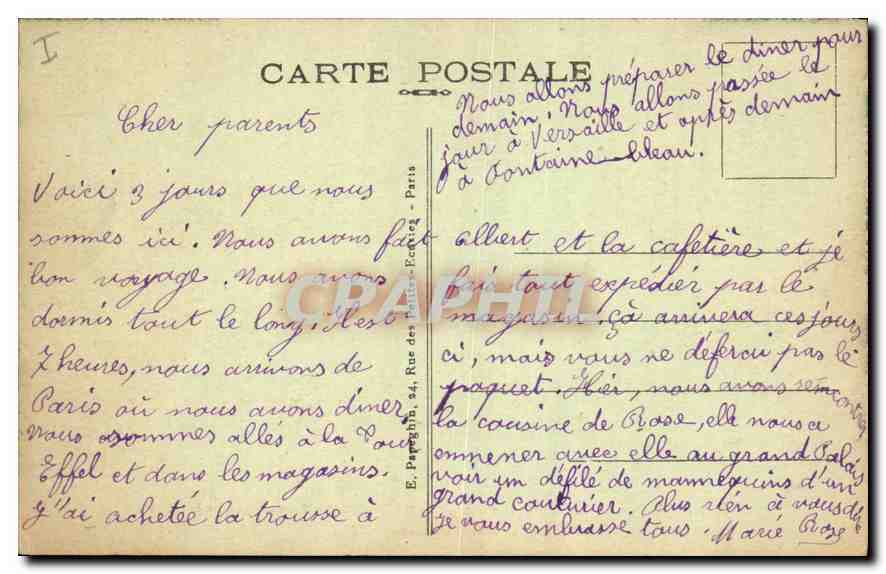 I
CARTE POSTALE
Cher parents
Voici 3 jours que nous
sommes ici. Nous avons fait
bon voyage. Nous avons
dormis tout le long. Il est
7 heures, nous arrivons de
Paris où nous avons diner,
Nous sommes allés à la Tour
Effel et dans les magasins.
J'ai achetée la trousse à
E. Papeghin, 24, Rue des Petites-Ecuries - Paris
albert et la cafetière et je
fais tout expédier par le
magasin. çà arrivera ces jours
ci, mais vous ne déferai pas le
paquet. Hier, nous avons rencontrer
la cousine de Rose, elle nous a
emmener avec elle au grand Palais
voir un défilé de mannequins d'un
grand couturier. Plus rien à vous dire
Je vous embrasse tous. Marie Rose
Nous allons préparer le diner pour
demain. Nous allons passée le
jour à Versaille et après demain
à Fontainebleau.
CPAPHIL